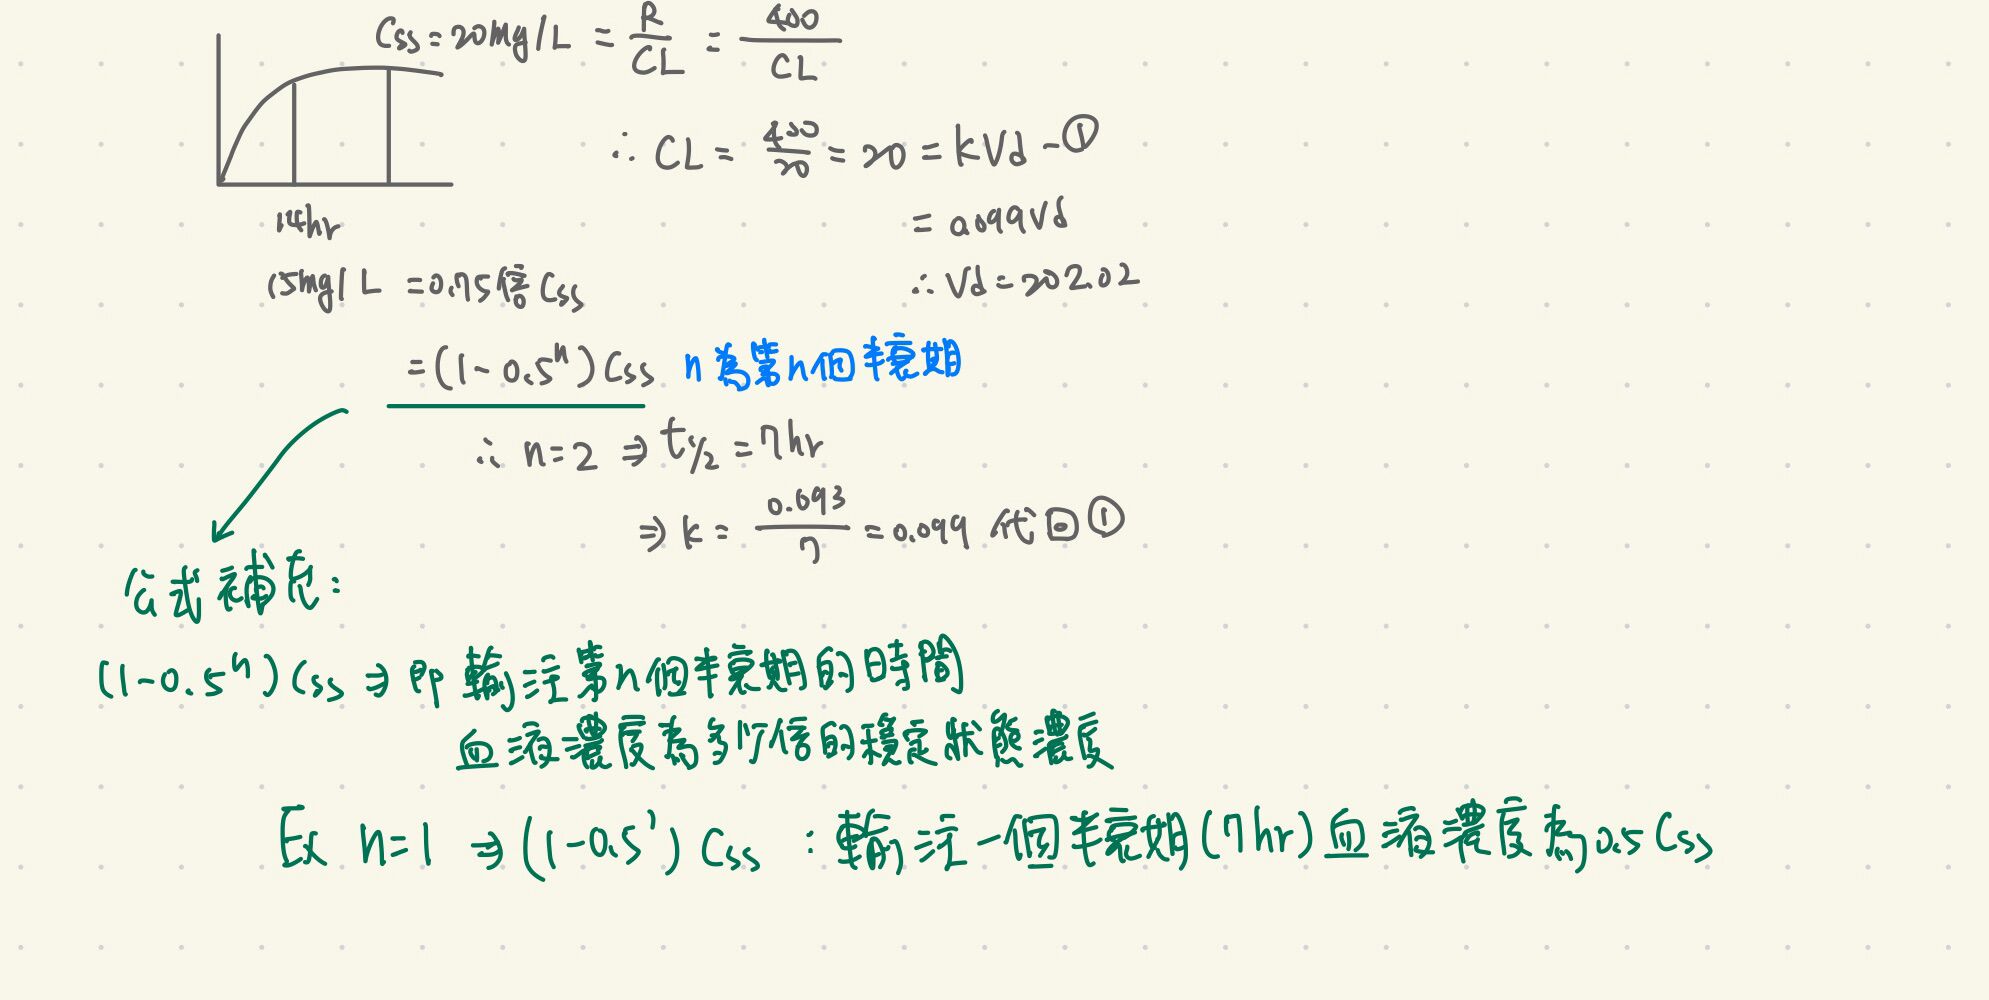 Css = 20mg/L = R/CL = 400/CL
∴ CL = 400/20 = 20 = kVd -①
14hr
= 0.099Vd
15mg/L = 0.75倍 Css
∴ Vd = 202.02
= (1-0.5ⁿ) Css n為第n個半衰期
∴ n=2 ⇒ t1/2 = 7hr
⇒ k = 0.693/7 = 0.099 代回①
公式補充:
(1-0.5ⁿ) Css ⇒ 即輸注第n個半衰期的時間
血液濃度為多少倍的穩定狀態濃度
Ex n=1 ⇒ (1-0.5¹) Css : 輸注一個半衰期(7hr)血液濃度為0.5 Css